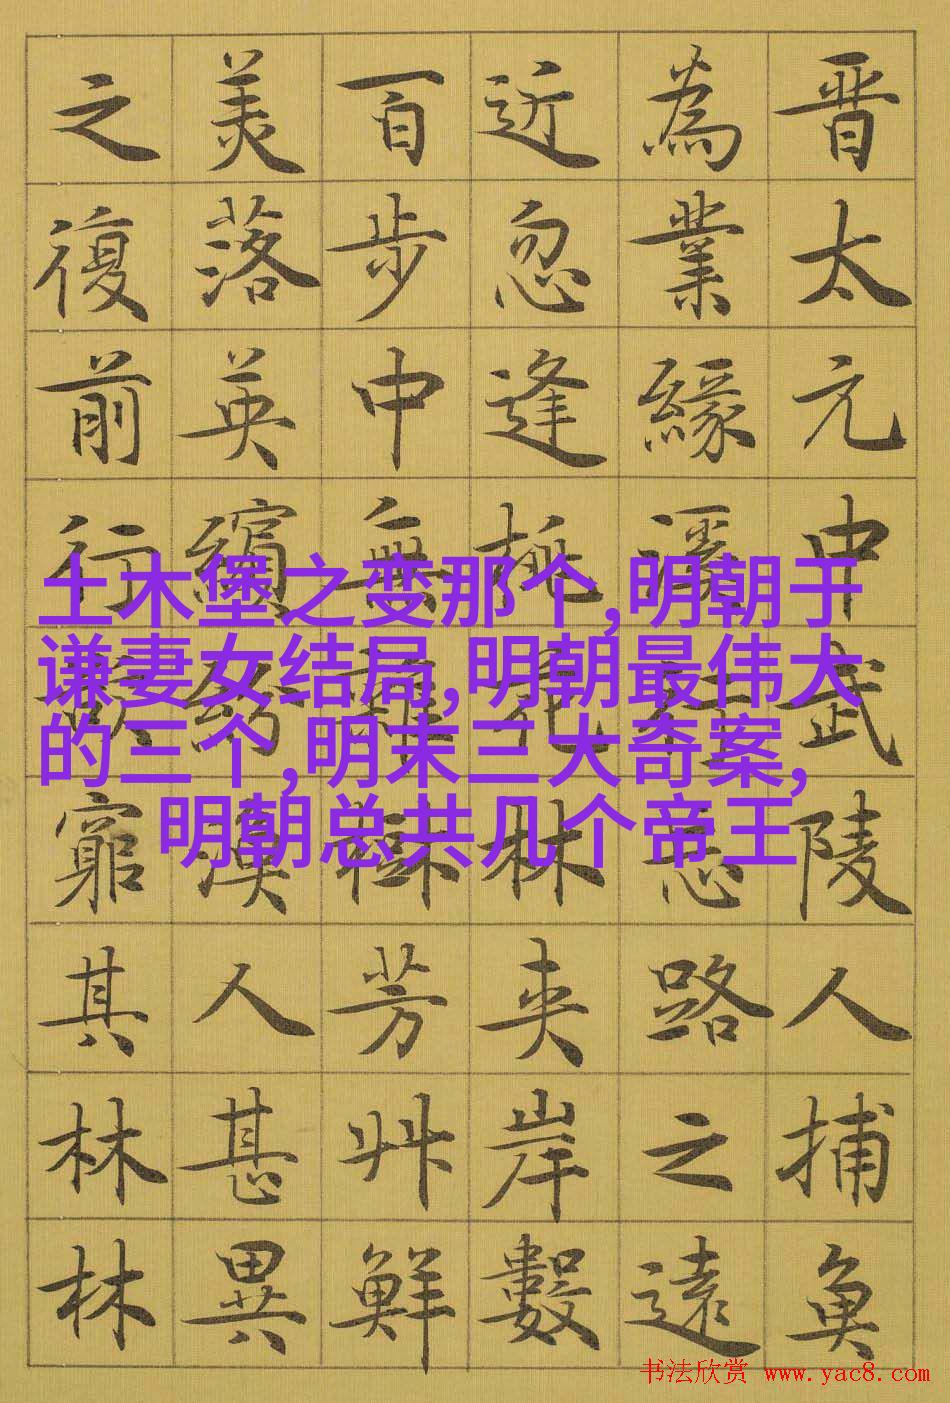 晋太元中武陵人捕魚
為業緣溪行忘路之遠
近忽逢桃花林夾岸數
百步中無雜樹芳艸鮮
美落英繽紛漁人甚異
之復前行欲窮其林林
土木堡之变那个,明朝于
谦妻女结局,明朝最伟大
的三个,明末三大奇案,
明朝总共几个帝王
书法欣赏 www.yac8.com